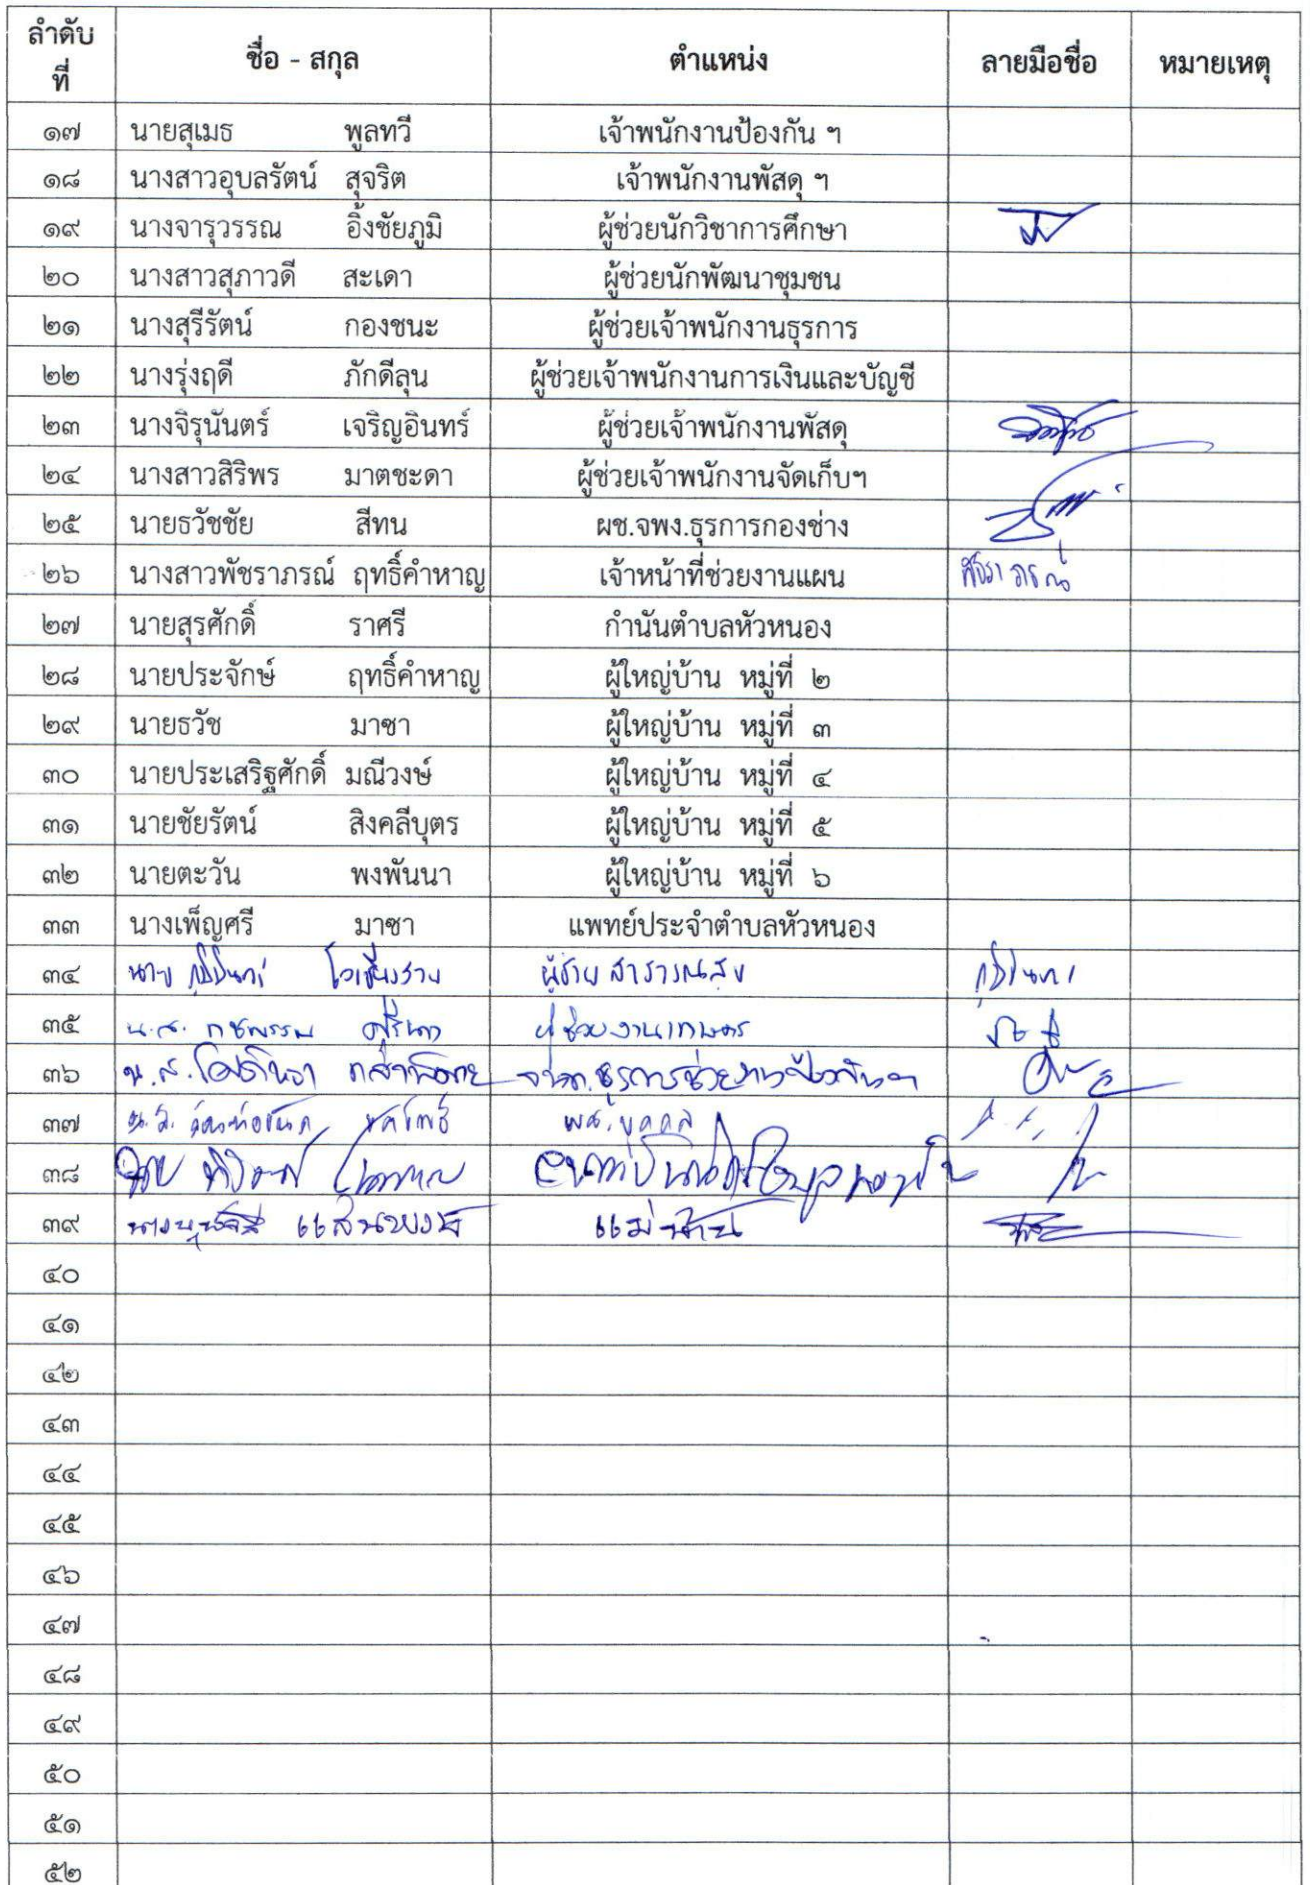 ลำดับที่ ชื่อ - สกุล ตำแหน่ง ลายมือชื่อ หมายเหตุ
๑๗ นายสุเมธ พูลทวี เจ้าพนักงานป้องกัน ฯ
๑๘ นางสาวอุบลรัตน์ สุจริต เจ้าพนักงานพัสดุ ฯ
๑๙ นางจารุวรรณ อิ้งชัยภูมิ ผู้ช่วยนักวิชาการศึกษา
๒๐ นางสาวสุภาวดี สะเดา ผู้ช่วยนักพัฒนาชุมชน
๒๑ นางสุรีรัตน์ กองชนะ ผู้ช่วยเจ้าพนักงานธุรการ
๒๒ นางรุ่งฤดี ภักดีลุน ผู้ช่วยเจ้าพนักงานการเงินและบัญชี
๒๓ นางจิรุนันตร์ เจริญอินทร์ ผู้ช่วยเจ้าพนักงานพัสดุ
๒๔ นางสาวสิริพร มาตชะดา ผู้ช่วยเจ้าพนักงานจัดเก็บฯ
๒๕ นายธวัชชัย สีทน ผช.จพง.ธุรการกองช่าง
๒๖ นางสาวพัชราภรณ์ ฤทธิ์คำหาญ เจ้าหน้าที่ช่วยงานแผน พัชราภรณ์
๒๗ นายสุรศักดิ์ ราศรี กำนันตำบลหัวหนอง
๒๘ นายประจักษ์ ฤทธิ์คำหาญ ผู้ใหญ่บ้าน หมู่ที่ ๒
๒๙ นายธวัช มาซา ผู้ใหญ่บ้าน หมู่ที่ ๓
๓๐ นายประเสริฐศักดิ์ มณีวงษ์ ผู้ใหญ่บ้าน หมู่ที่ ๔
๓๑ นายชัยรัตน์ สิงคลีบุตร ผู้ใหญ่บ้าน หมู่ที่ ๕
๓๒ นายตะวัน พงพันนา ผู้ใหญ่บ้าน หมู่ที่ ๖
๓๓ นางเพ็ญศรี มาซา แพทย์ประจำตำบลหัวหนอง
๓๔ นาย
๓๕ น.ส. ผู้ช่วยงานเกษตร
๓๖ น.ส.
๓๗ น.ส. บุคคล
๓๘ นาย
๓๙ แม่บ้าน
๔๐
๔๑
๔๒
๔๓
๔๔
๔๕
๔๖
๔๗
๔๘
๔๙
๕๐
๕๑
๕๒